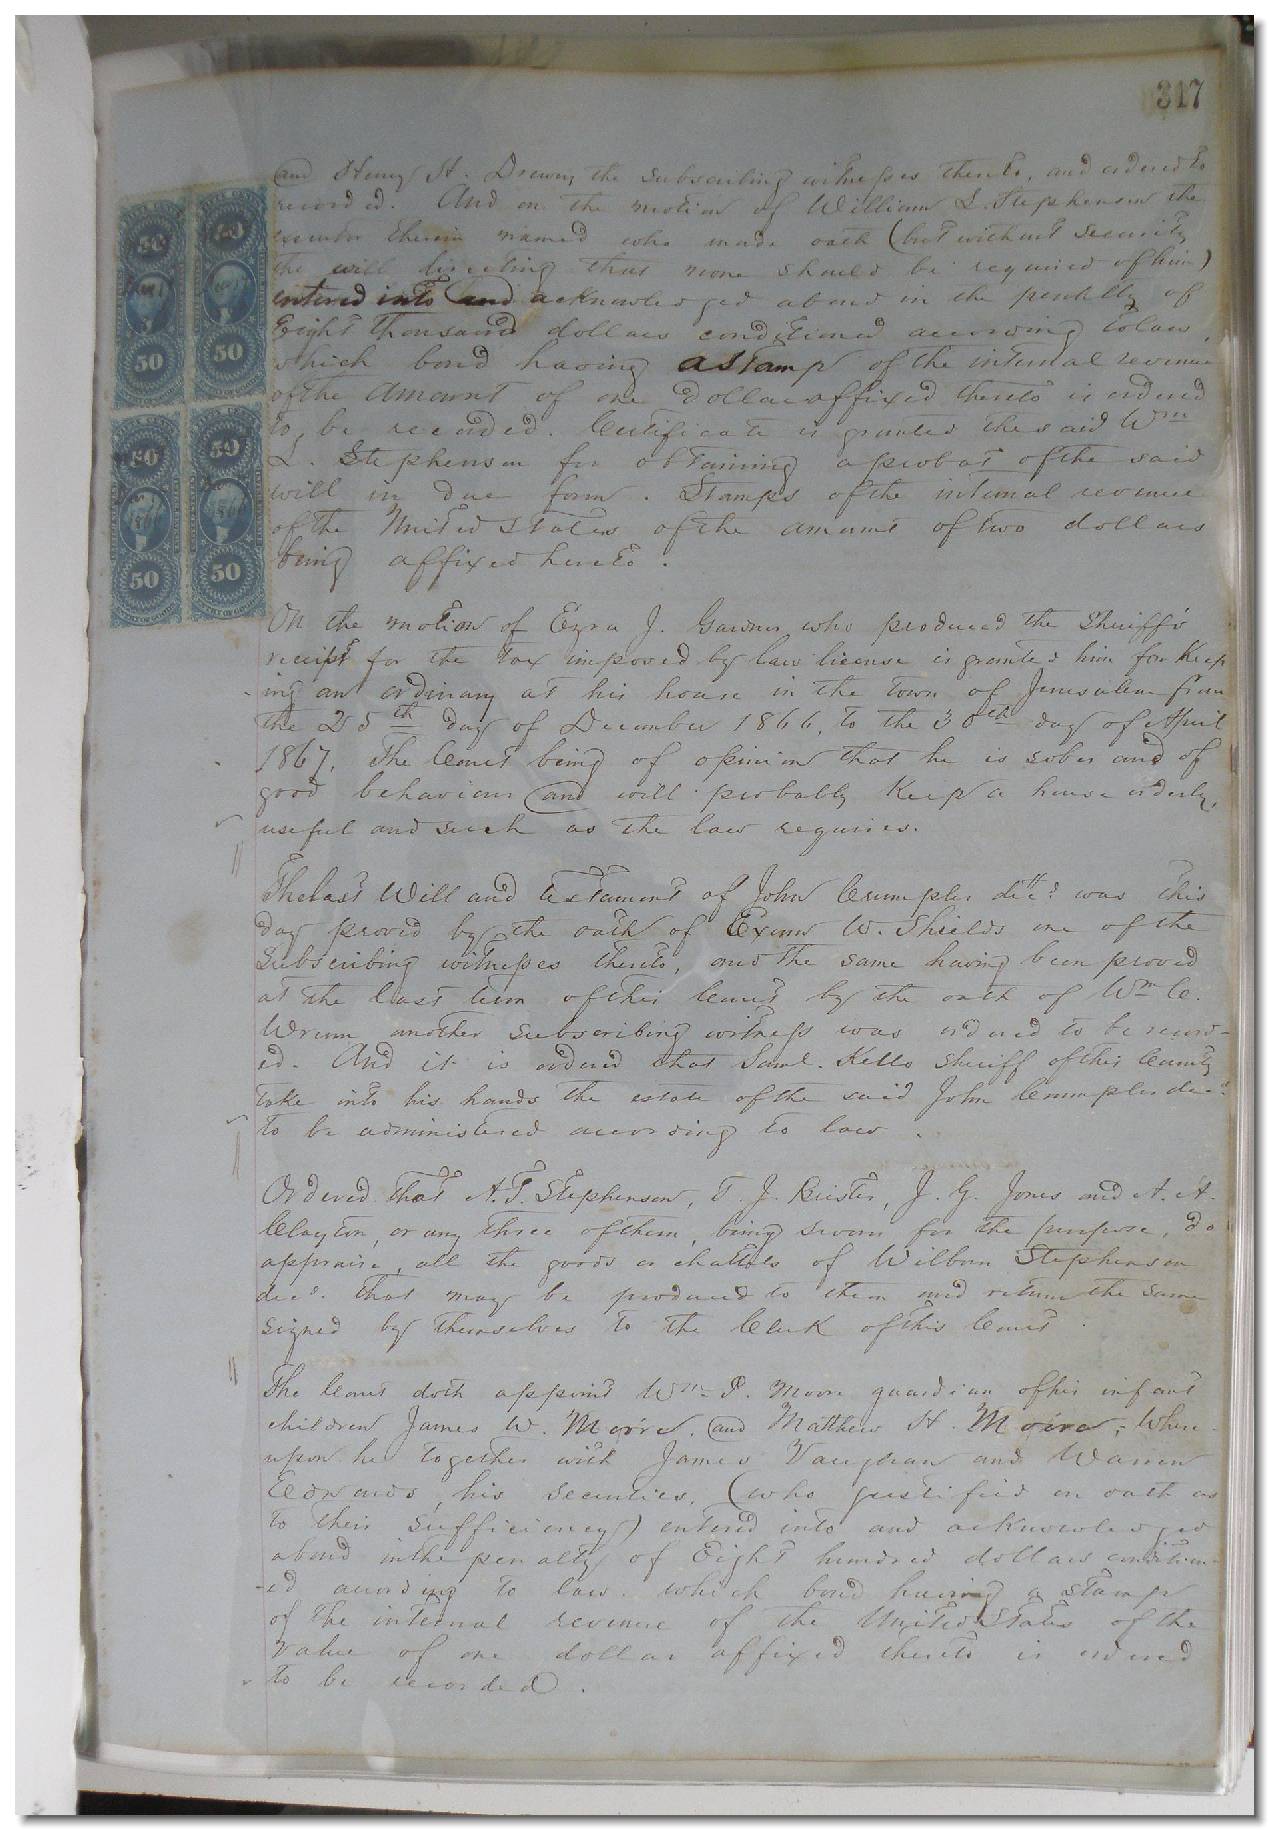 317
and Henry H. Drewry the subscribing witnesses thereto, and ordered to
recorded. And on the motion of William L. Stephenson the
executor therein named who made oath (but without security
the will directing that none should be required of him)
entered into and acknowledged abond in the penalty of
Eight thousand dollars conditioned according to law,
which bond having a stamp of the internal revenue
of the amount of one dollar affixed thereto is ordered
to, be recorded. Certificate is granted the said Wm
L. Stephenson for obtaining a probat of the said
will in due form. Stamps of the internal revenue
of the United States of the amount of two dollars
being affixed hereto.
50 50
50 50
50 50
50 50
On the motion of Ezra J. Garner who produced the Sheriff's
receipt for the tax imposed by law license is granted him for Keep
ing an ordinary at his house in the town of Jerusalem from
the 25th day of December 1866, to the 30th day of April
1867, The Court being of opinion that he is sober and of
good behaviour and will probably Keep a house orderly,
useful and such as the law requires.
The last Will and testament of John Crumpler decd. was this
day proved by the oath of Exum W. Shields one of the
Subscribing witnesses thereto, and the same having been proved
at the last term of this Court by the oath of Wm C.
Wrenn another subscribing witness was ordered to be record-
ed. And it is ordered that Saml. Kello Sheriff of this County
take into his hands the estate of the said John Crumpler decd.
to be administered according to law.
Ordered that A. T. Stephenson, T. J. Riester, J. G. Jones and A. A.
Clayton, or any three of them, being sworn for the purpose, do
appraise, all the goods or chattels of Wilborn Stephenson
decd. that may be produced to them and return the same
signed by themselves to the Clerk of this Court.
The Court doth appoint Wm. P. Moore guardian of his infant
children James W. Moore. and Matthew H. Moore, Where
upon he together with James Vaughan and Warren
Edwards, his securities, (who justified on oath as
to their sufficiency) entered into and acknowledged
abond in the penalty of Eight hundred dollars condition-
-ed according to law. which bond having a stamp
of the internal revenue of the United States of the
value of one dollar affixed thereto is ordered
to be recorded.